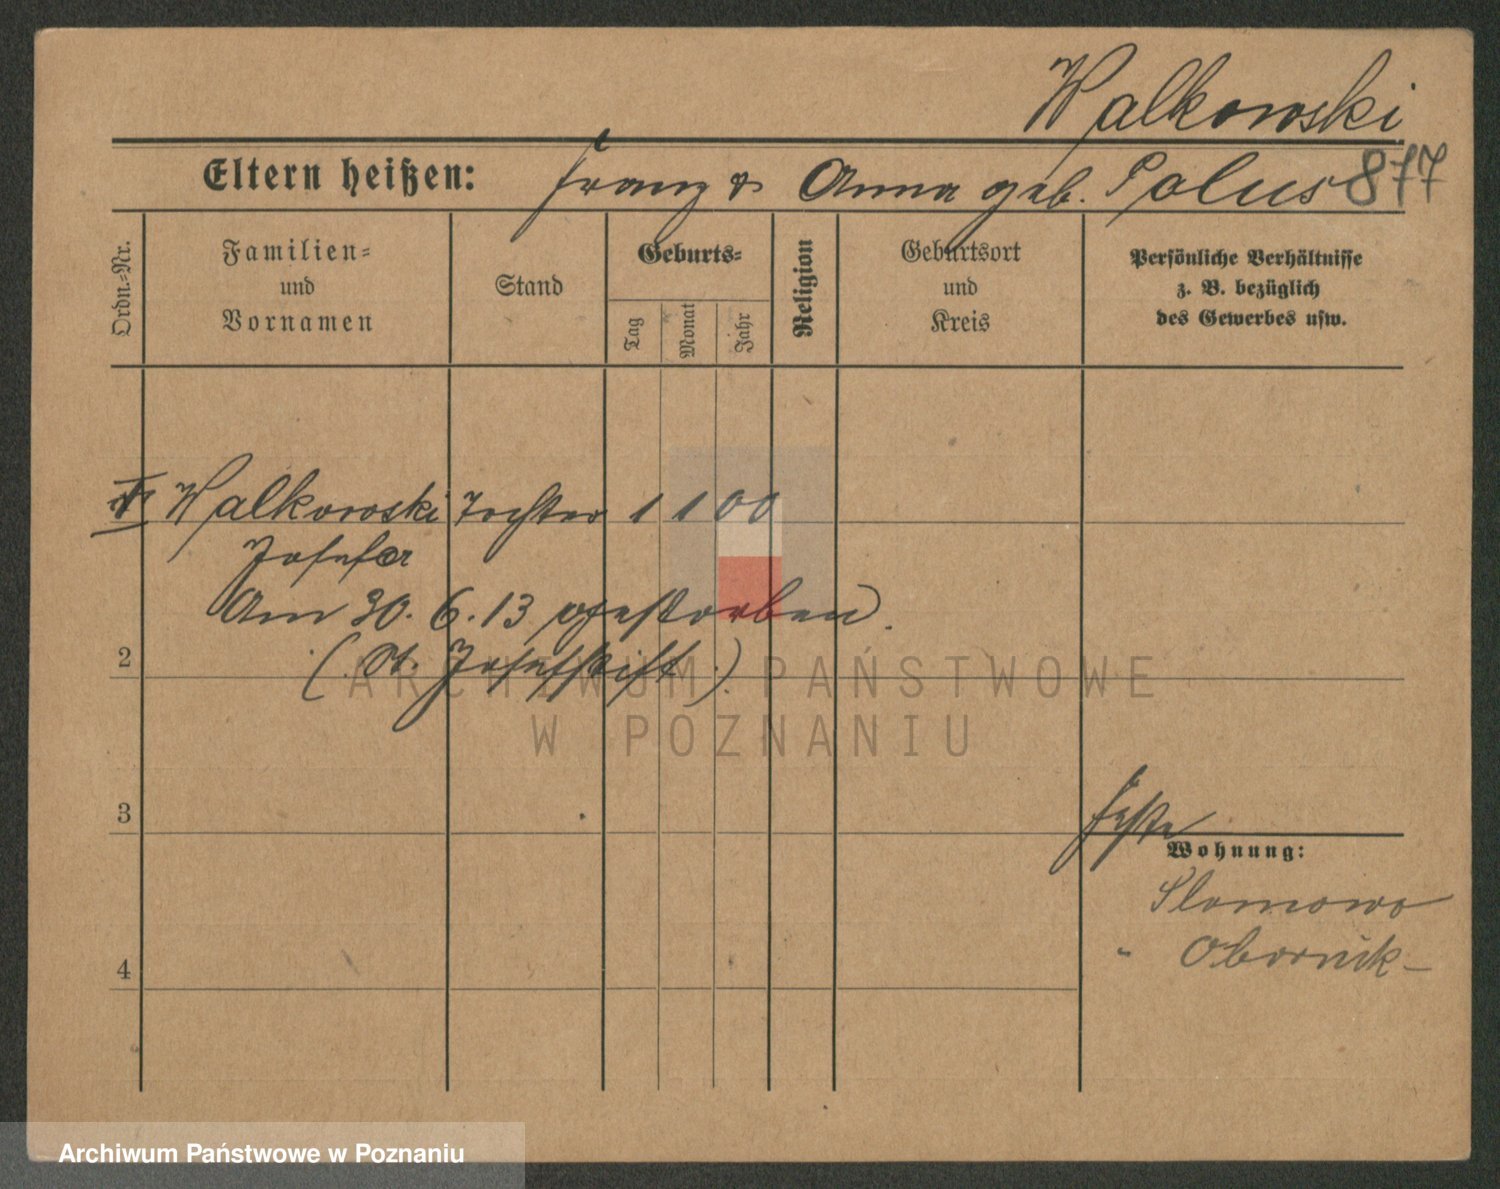 Walkowski
Eltern heißen: Franz & Anna geb. Polus 877
Ordn.-Nr.
Familien-
und
Vornamen
Stand
Geburts-
Tag
Monat
Jahr
Religion
Geburtsort
und
Kreis
Persönliche Verhältnisse
z. B. bezüglich
des Gewerbes usw.
Walkowski Tochter 1 1 00
Josefa
Am 30. 6. 13 gestorben.
(St. Josefstift.)
2
3
4
Wohnung:
Slomowo
Obornik
ARCHIWUM PAŃSTWOWE
W POZNANIU
Archiwum Państwowe w Poznaniu